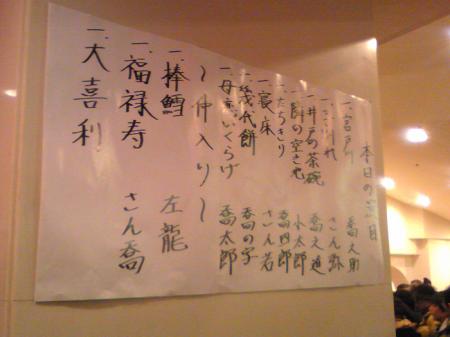 本日の演目
一.宮戸川 喬之助
さん弥
一.井戸の茶碗 喬之進
小太郎
一.たちきり 喬四郎
一.寝床 さん若
一.幾代餅 喬の字
一.母恋いくらげ 喬太郎
〜仲入り〜
一.棒鱈 左龍
一.福禄寿 さん喬
一.大喜利